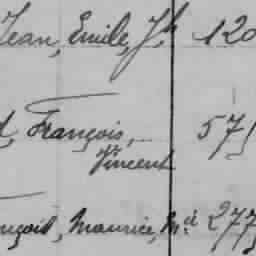 Jean, Emile, Jh 120
François, 575
Vincent
nçois, Maurice, Md 277